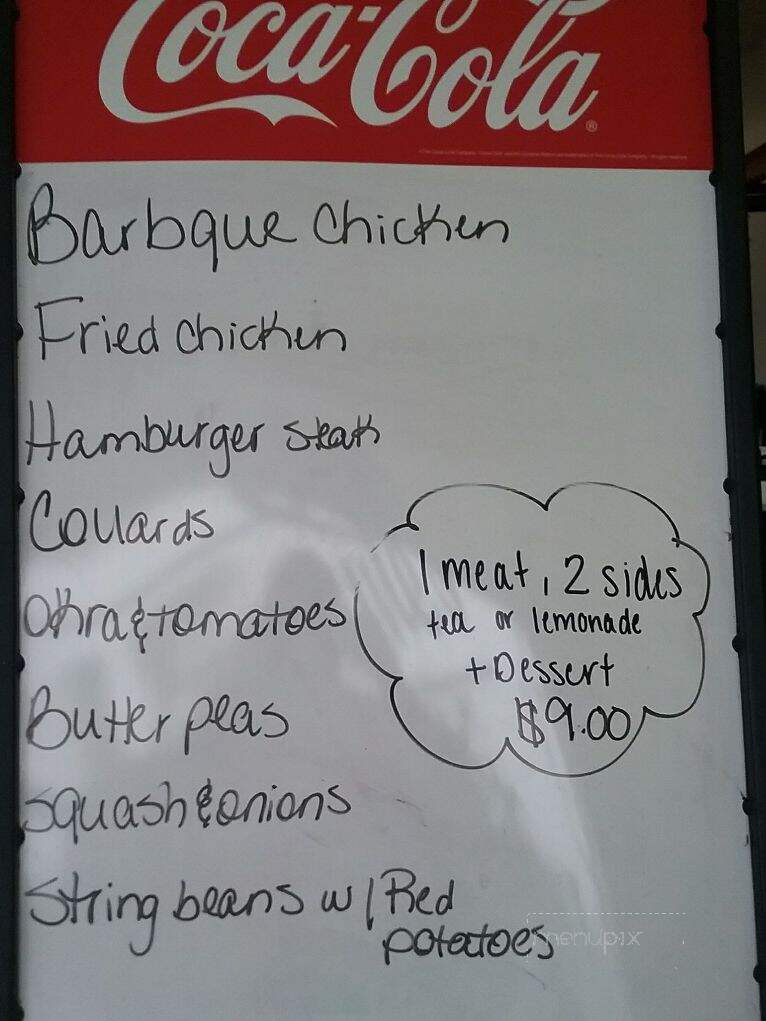 Coca-Cola
Barbque Chicken
Fried chicken
Hamburger steak
Collards
Okra & tomatoes
Butter peas
Squash & onions
String beans w/ Red
potatoes
1 meat, 2 sides
tea or lemonade
+ Dessert
$9.00
menupix